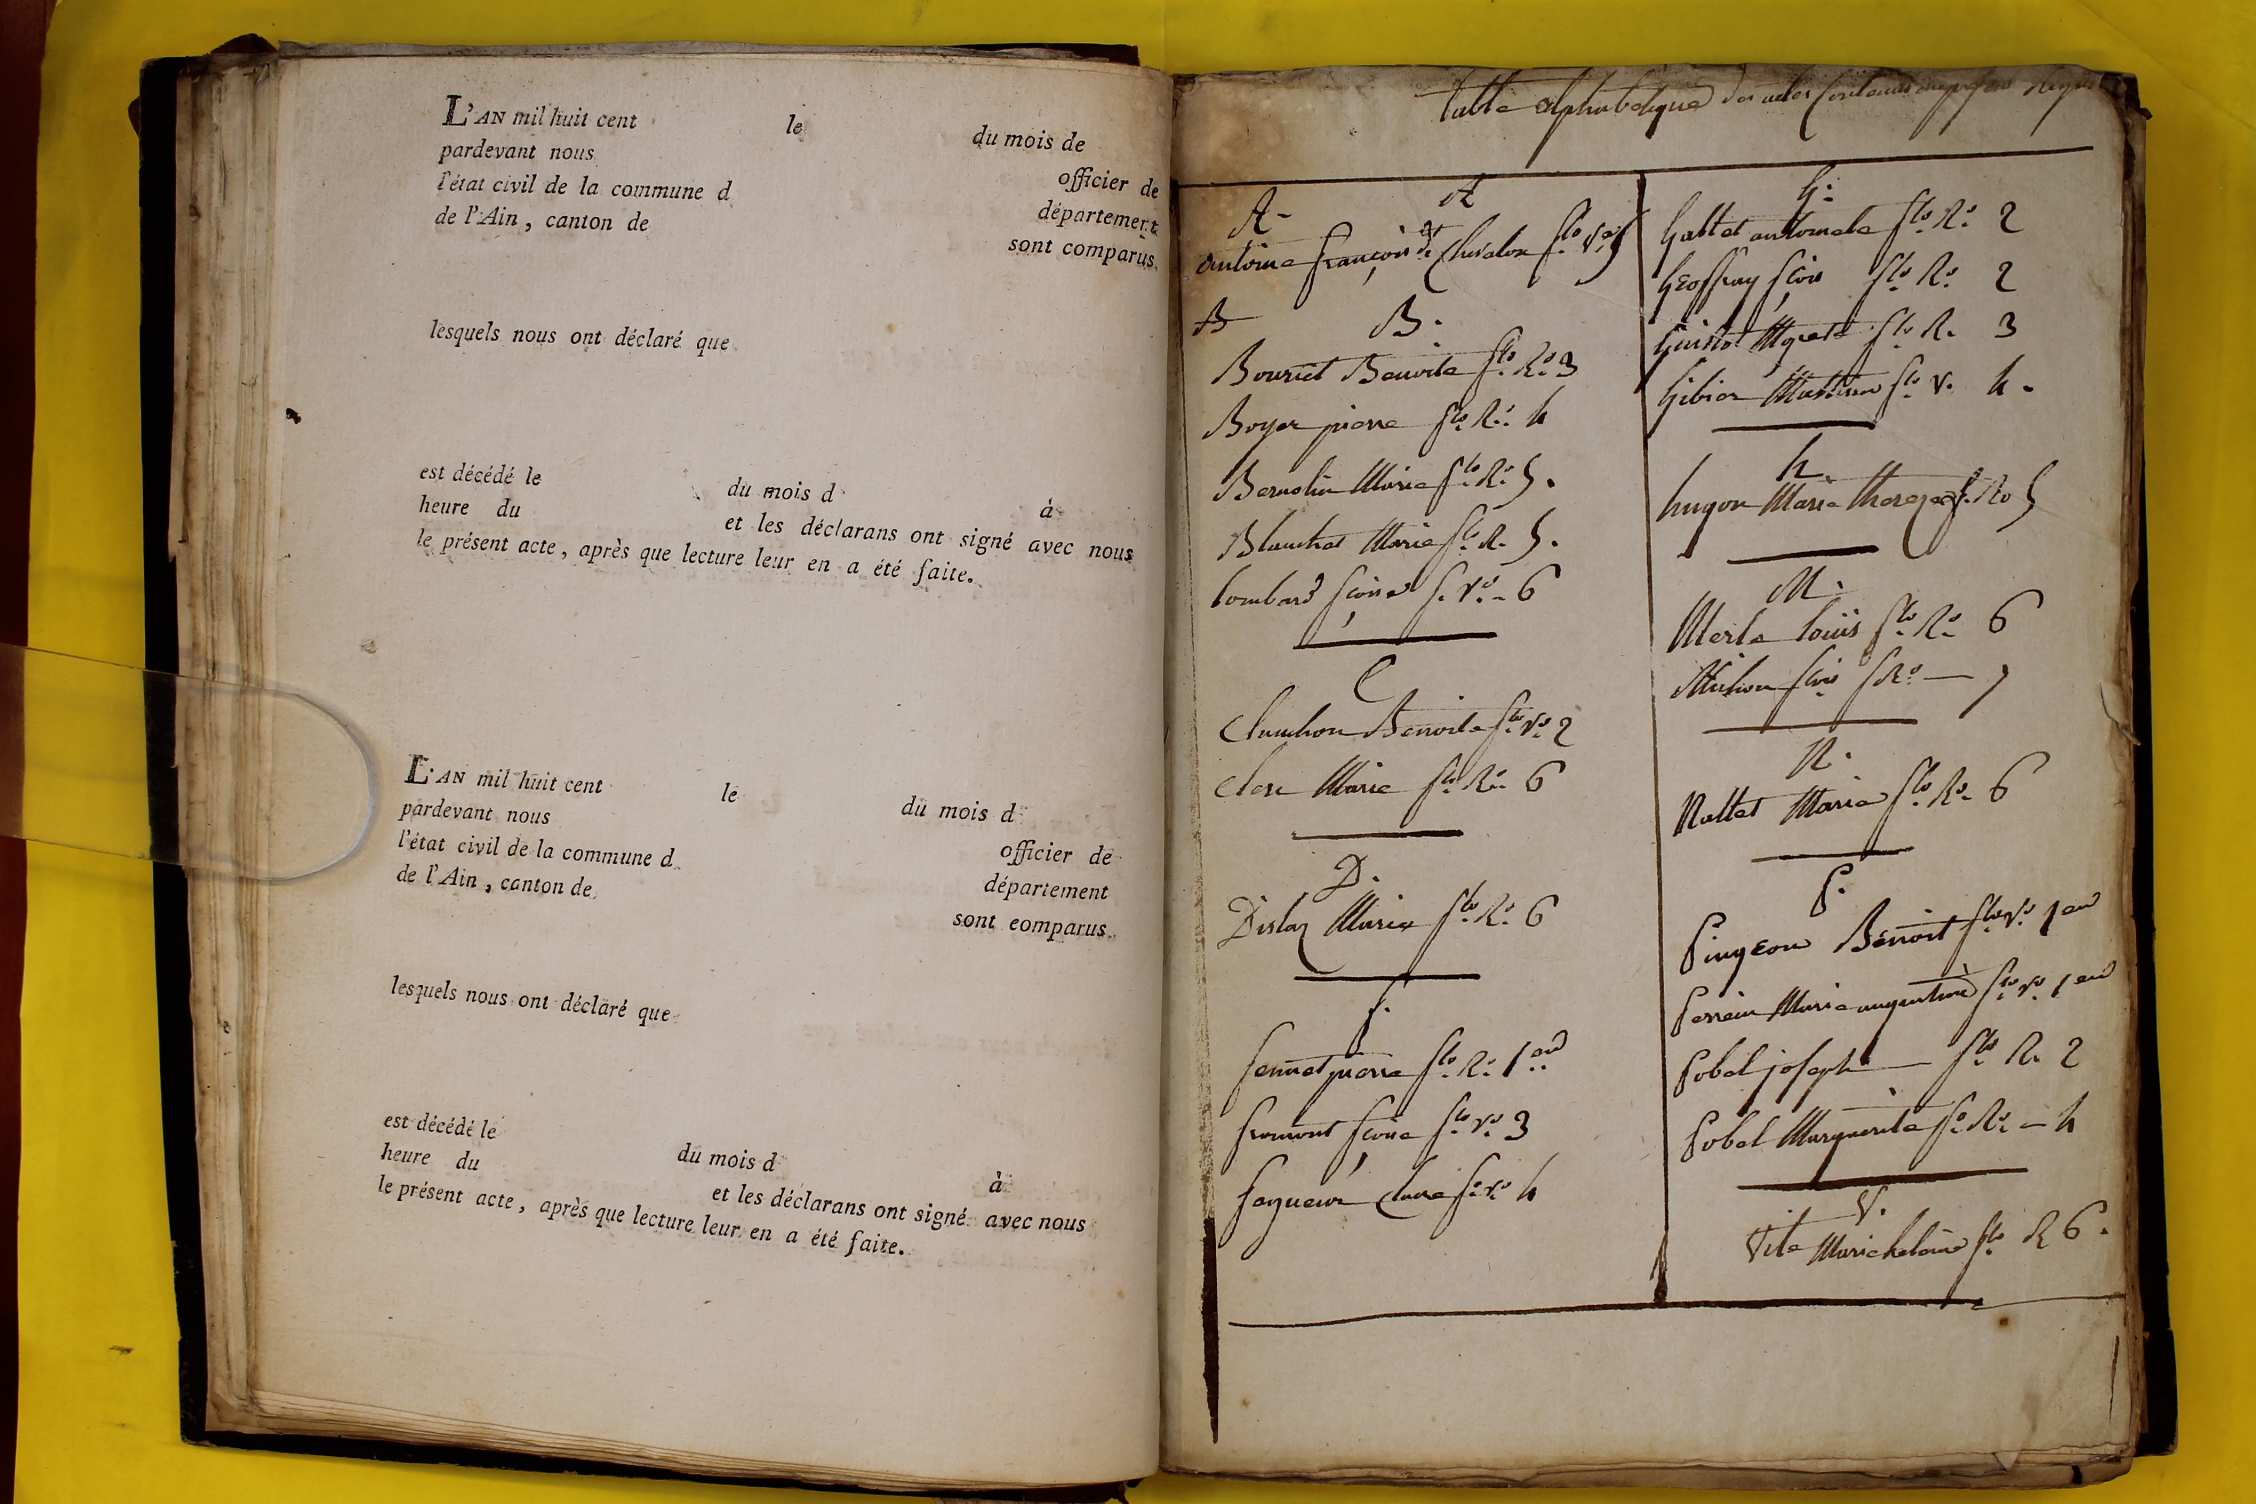 L'AN mil huit cent le du mois de
pardevant nous officier de
l'état civil de la commune d département
de l'Ain, canton de sont comparus
lesquels nous ont déclaré que
est décédé le du mois d à
heure du et les déclarans ont signé avec nous
le présent acte, après que lecture leur en a été faite.
L'AN mil huit cent le du mois d
pardevant nous officier de
l'état civil de la commune d département
de l'Ain, canton de sont eomparus
lesquels nous ont déclaré que
est décédé le du mois d à
heure du et les déclarans ont signé avec nous
le présent acte, après que lecture leur en a été faite.
table alphabetique des actes contenus
A- A
antoine françois de Chivalon flo
B B.
Bourcet Benoite flo Ro 3
Boyer pierre flo Ro 4
Bernolin Marie flo Ro 5.
Blanchet Marie flo R. 5.
bombard fçoise f. vo - 6
C
Chanchon Benoite flo vo 2
clere Marie flo Ro 6
D.
Dislaz Marie flo Ro 6
f.
fennet pierre flo Ro 1er
fromont fçoise flo vo 3
fayneur claire fo vo 4
G.
Gattet antoinette flo Ro 2
Geoffray fçois flo Ro 2
flo R. 3
Gibier flo v. 4.
h.
hugon Marie thereze f. Ro 5
M.
Merle louis flo Ro 6
Michon fçois f Ro
N.
Nallet Marie flo Ro 6
P.
Pingeon Benoit flo vo 1er
Perrein Marie augustine flo vo 1er
Pobel joseph flo R. 2
Pobel Marguerite fo Ro - 4
V.
Vite Marie helaine flo R 6.